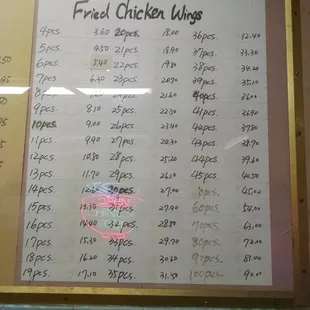 Fried Chicken Wings
4pcs. 3.60 20pcs. 18.00 36pcs. 32.40
5pcs. 4.50 21pcs. 18.90 37pcs. 33.30
6pcs. 5.40 22pcs. 19.80 38pcs. 34.20
7pcs. 6.30 23pcs. 20.70 39pcs. 35.10
21.60 40pcs. 36.00
9pcs. 8.10 25pcs. 22.50 41pcs. 36.90
10pcs. 9.00 26pcs. 23.40 42pcs. 37.80
11pcs. 9.90 27pcs. 24.30 43pcs. 38.70
12pcs. 10.80 28pcs. 25.20 44pcs. 39.60
13pcs. 11.70 29pcs. 26.10 45pcs. 40.50
14pcs. 12.60 30pcs. 27.00 50pcs. 45.00
15pcs. 13.50 31pcs. 27.90 60pcs. 54.00
16pcs. 14.40 32pcs. 28.80 70pcs. 63.00
17pcs. 15.30 33pcs. 29.70 80pcs. 72.00
18pcs. 16.20 34pcs. 30.60 90pcs. 81.00
19pcs. 17.10 35pcs. 31.50 100pcs. 90.00